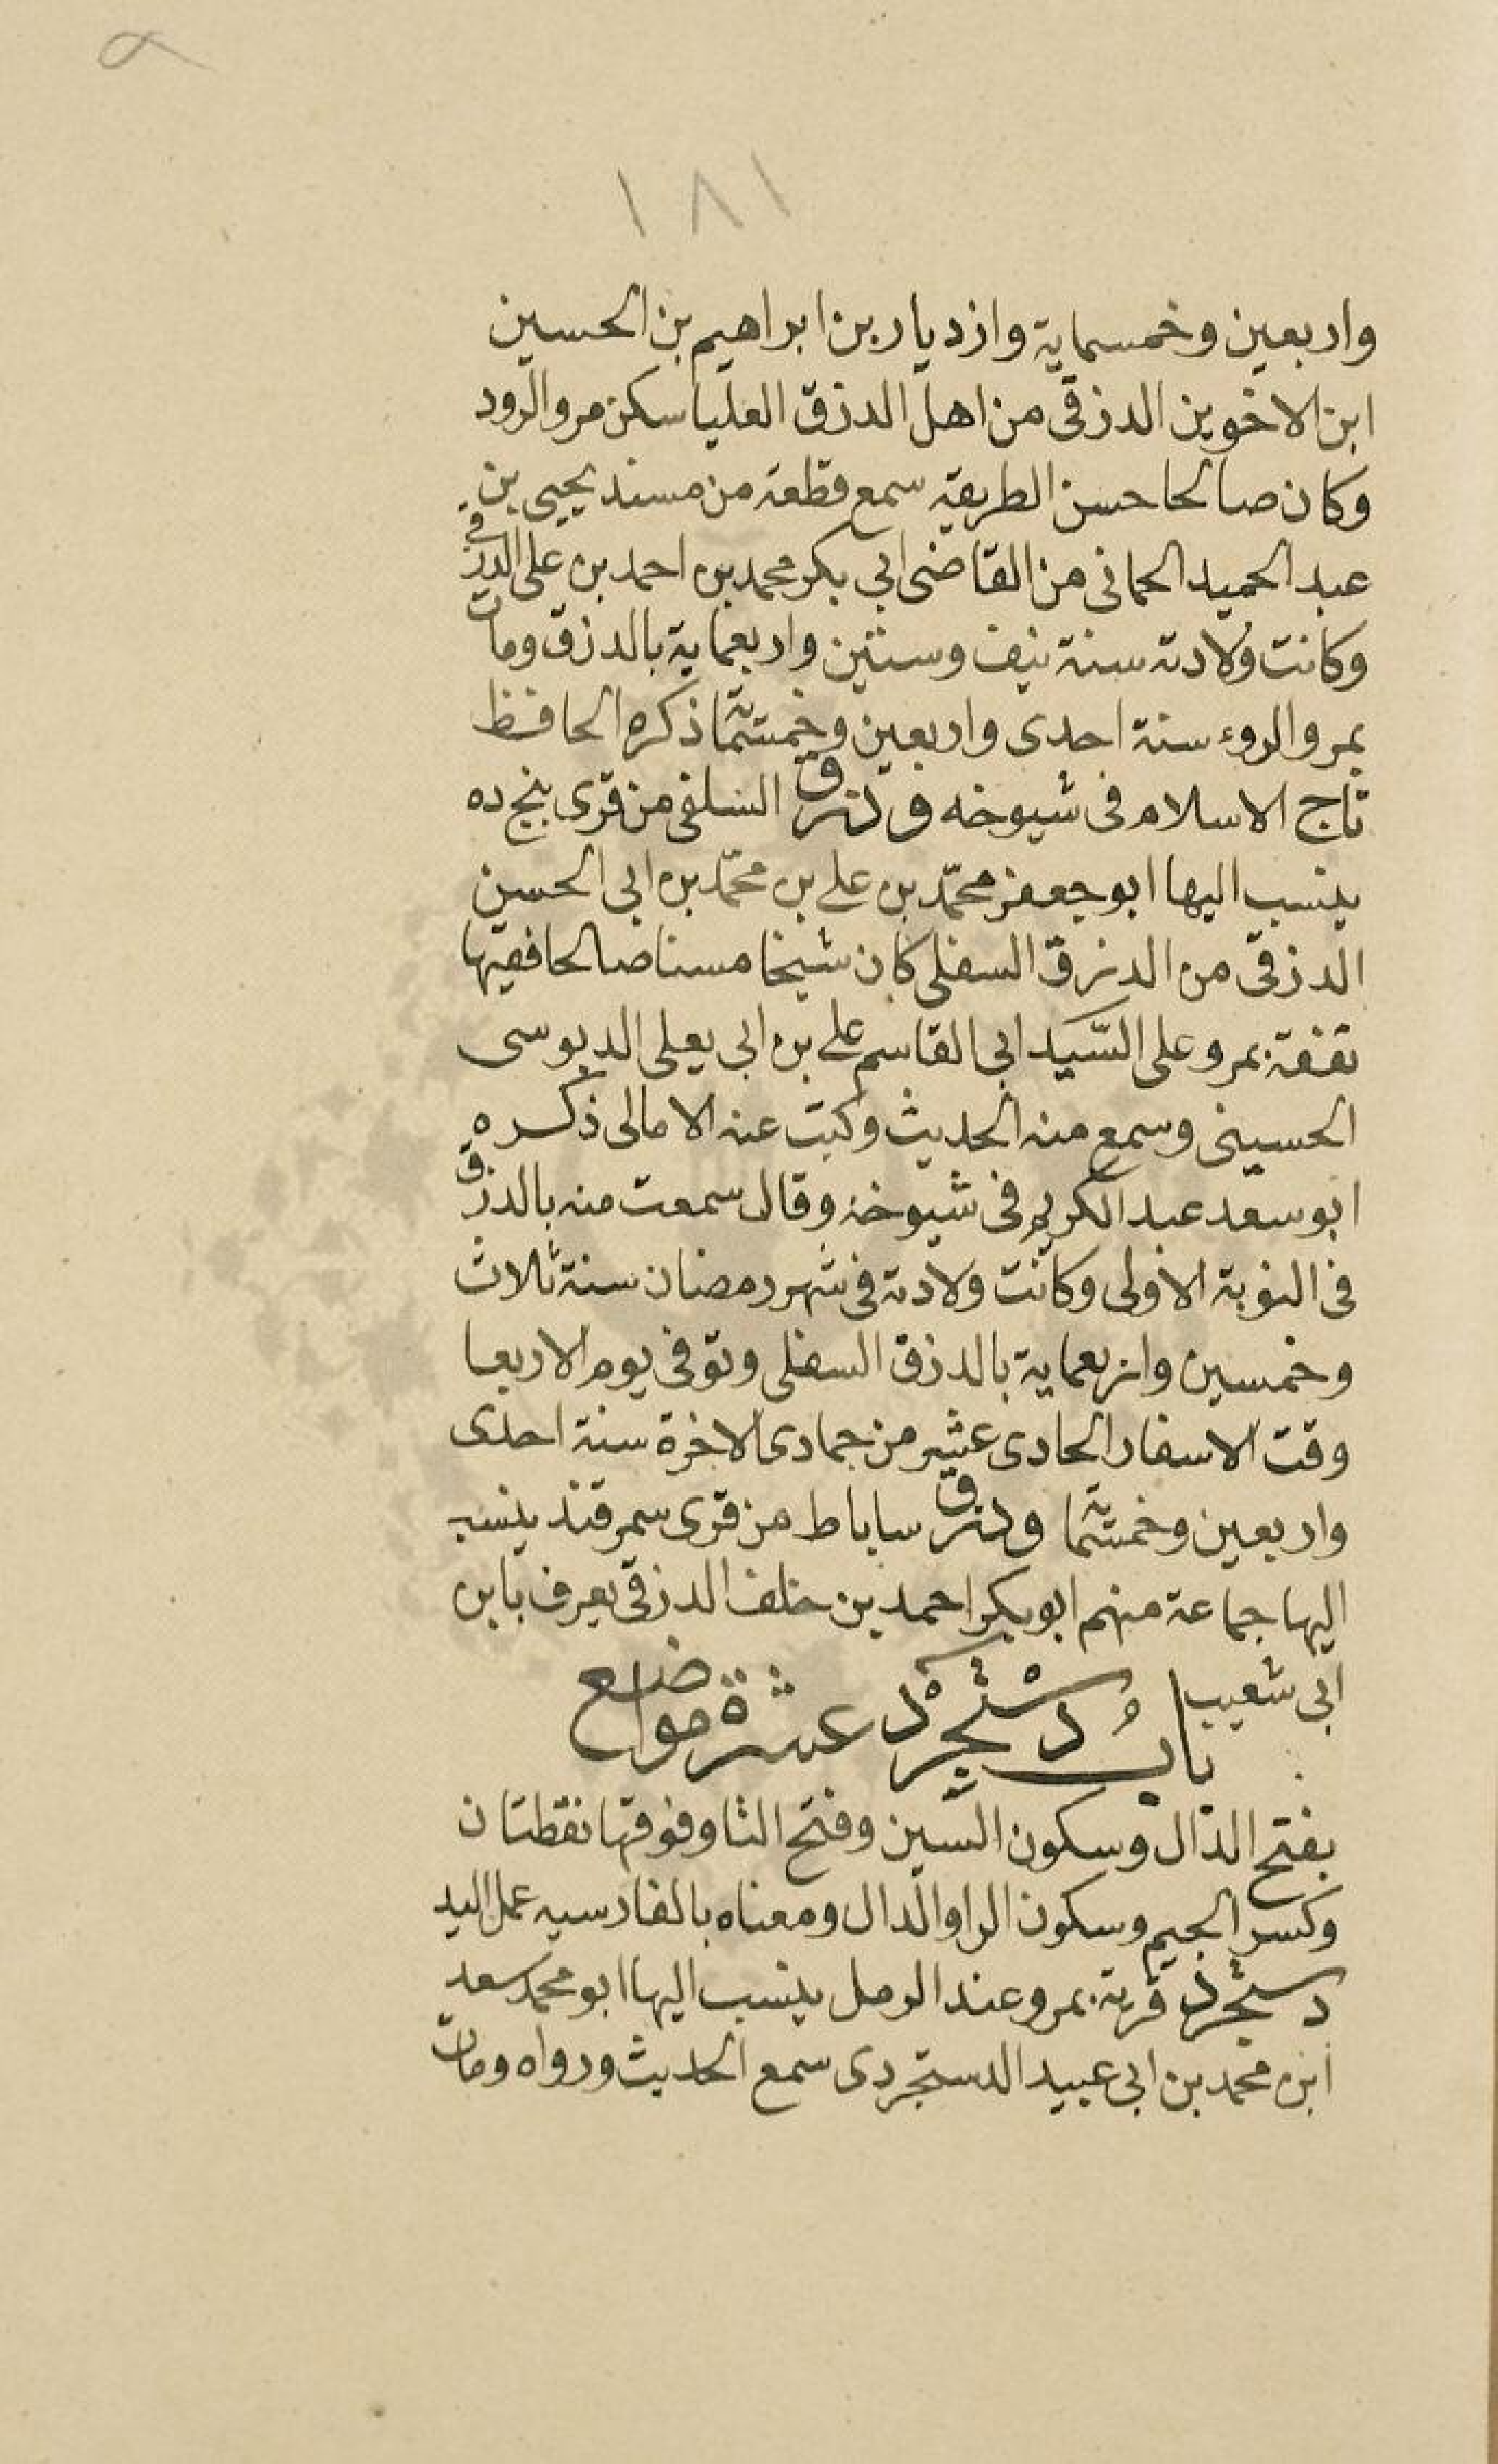 ١٨١
واربعين وخمسماية وازديار بن ابراهيم بن الحسين
ابن الاخوين الدزقى من اهل الدزق العليا سكن مرو الرود
وكان صالحا حسن الطريقة سمع قطعة من مسند يحيى بن
عبد الحميد الحمانى من القاضى ابي بكر محمد بن احمد بن على الدزقي
وكانت ولادته سنة نيف وستين واربعماية بالدزق ومات
بمرو الروء سنة احدى واربعين وخمستما ذكره الحافظ
تاج الاسلام فى شيوخه ودزق السفلى من قرى بنج ده
ينسب اليها ابو جعفر محمّد بن على بن محمّد بن ابى الحسين
الدزقى من الدزق السفلى كان شيخا مسنا صالحا فقيها
تفقه بمرو على السّيد ابى القاسم على بن ابى يعلى الدبوسى
الحسينى وسمع منه الحديث وكتب عنه الامالى ذكره
ابو سعد عبد الكريم فى شيوخه وقال سمعت منه بالدزق
فى النوبة الاولى وكانت ولادته فى شهر رمضان سنة ثلاث
وخمسين واربعماية بالدزق السفلى وتوفى يوم الاربعا
وقت الاسفار الحادى عشر من جمادى الاخرة سنة احدى
واربعين وخمستما ودزق ساباط من قرى سمرقند ينسب
اليها جماعة منهم ابو بكر احمد بن خلف الدزقى يعرف بابن
ابى شعيب
باب دستجرد عشرة مواضع
بفتح الدال وسكون السين وفتح التا وفوقها نقطتان
وكسر الجيم وسكون الرا والدال ومعناه بالفارسيه عمل اليد
دستجرد قرية بمرو عند الرمل ينسب اليها ابو محمد سعيد
ابن محمد بن ابى عبيد الدستجردى سمع الحديث ورواه ومات